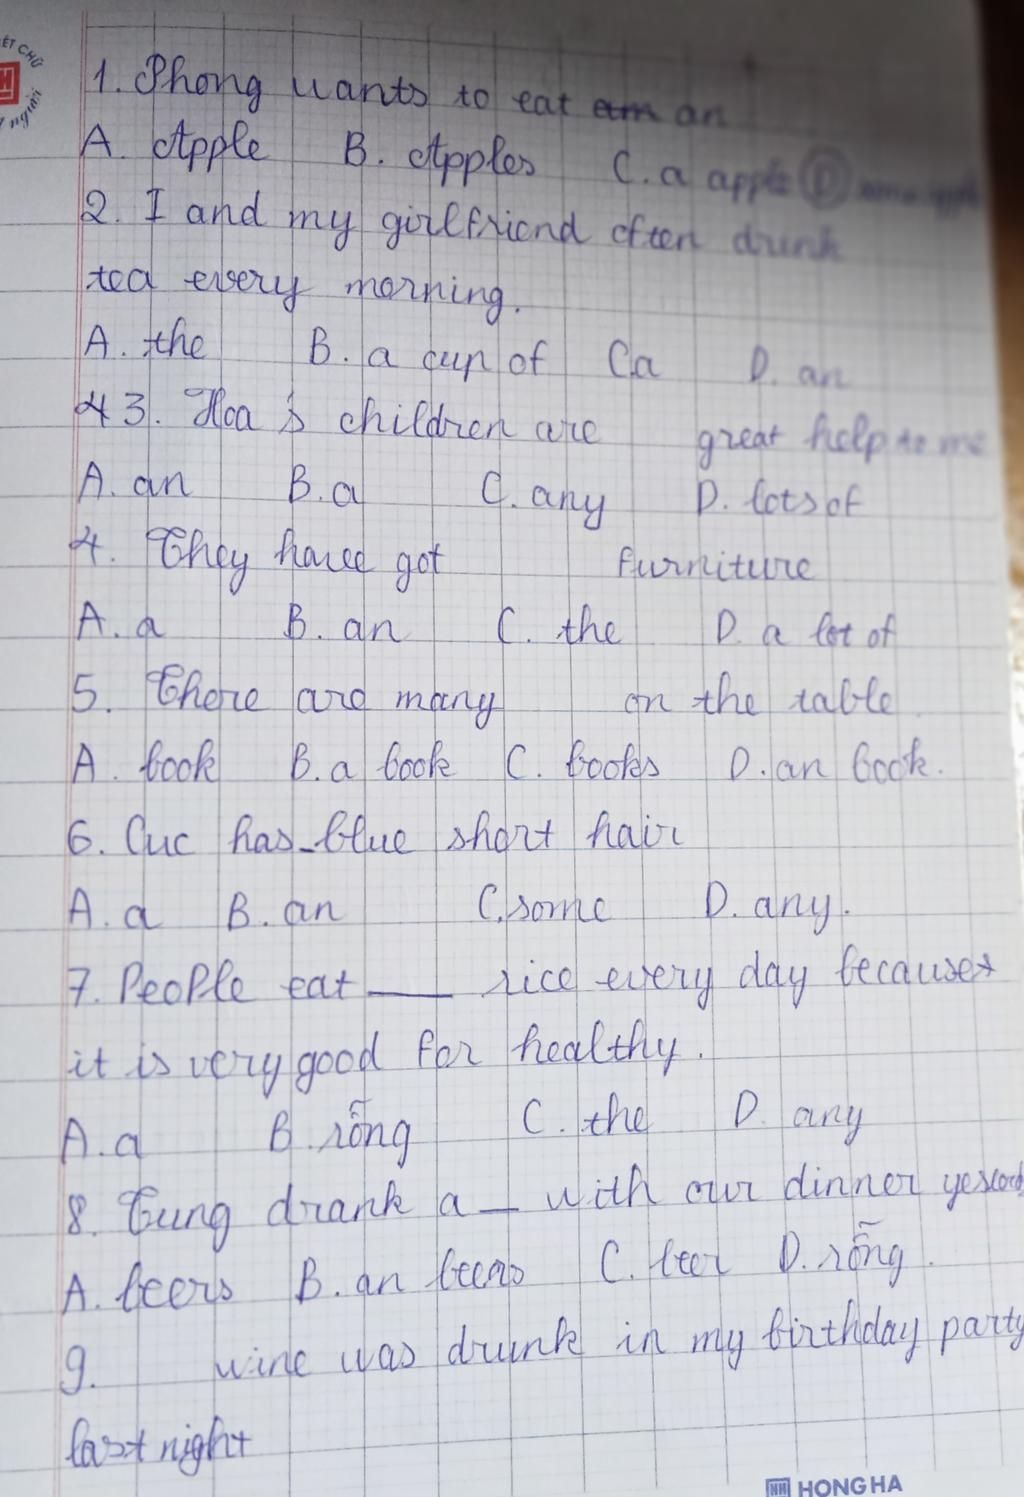 1. Phong wants to eat an
A. Apple B. Apples C. a apple D
2. I and my girlfriend often drink
tea every morning.
A. the B. a cup of C a D. an
3. Hoa's children are great help to me
A. an B. a C. any D. lots of
4. They have got furniture
A. a B. an C. the D. a lot of
5. There are many on the table
A. book B. a book C. books D. an book.
6. Cuc has_blue short hair
A. a B. an C. some D. any.
7. PeoPle eat ___ rice every day because
it is very good for healthy.
A. a B. rỗng C. the D. any
8. Tung drank a _ with our dinner
A. beers B. an beers C. beer D. rỗng.
9. wine was drunk in my birthday party
last night
HONG HA